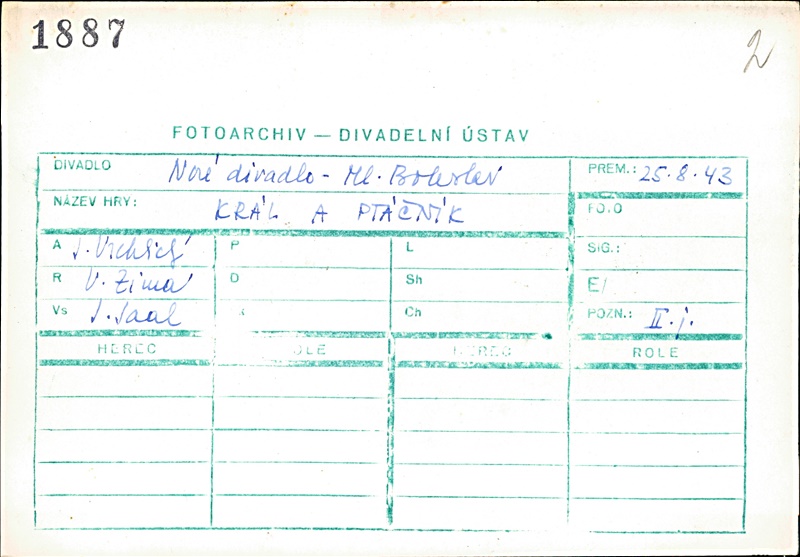 1887
2
FOTOARCHIV — DIVADELNÍ ÚSTAV
DIVADLO Nové divadlo - Ml. Boleslav PREM.: 25.8.43
NÁZEV HRY: KRÁL A PTÁČNÍK FOTO
A J. Vrchlický P L SIG.:
R V. Zima D Sh E/
Vs J. Saal K Ch POZN.: II. j.
HEREC ROLE HEREC ROLE